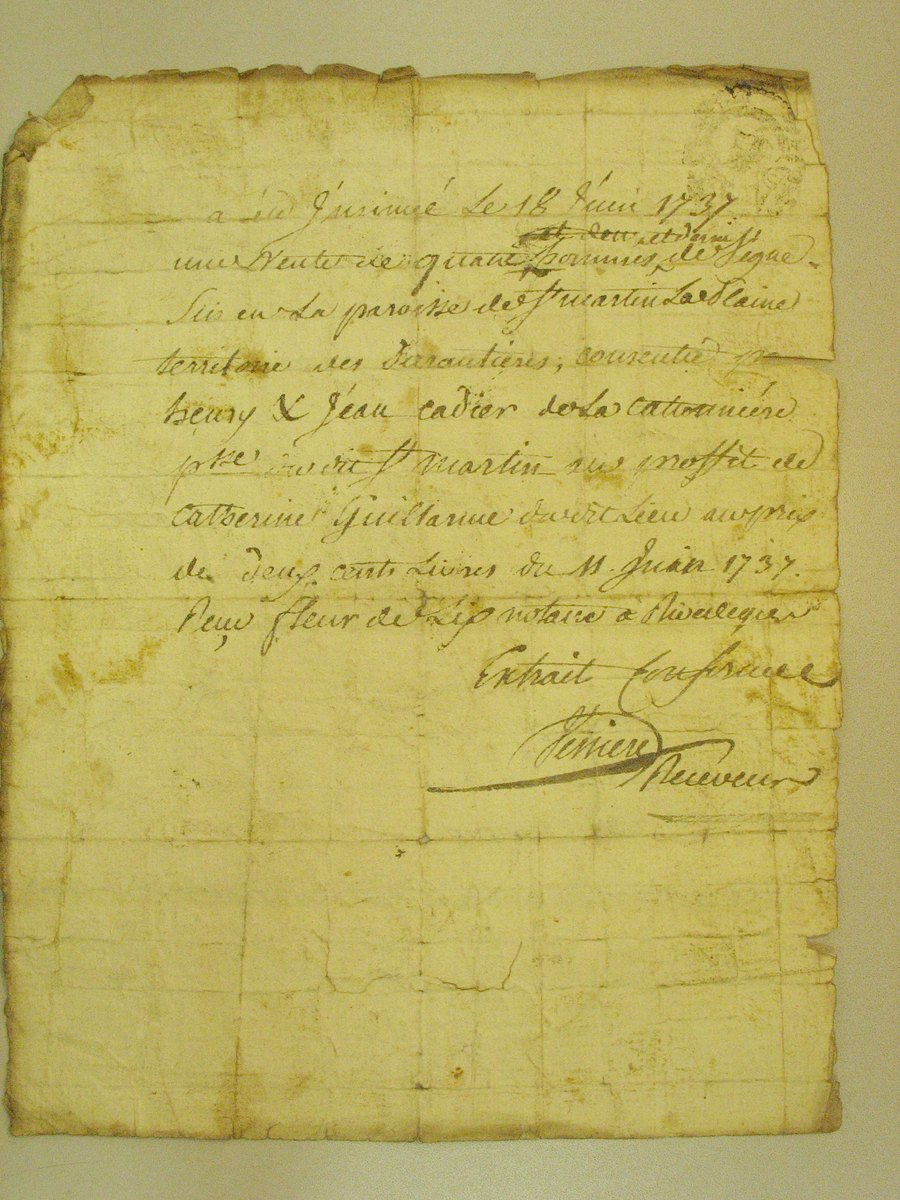 a été Jnsinué Le 18 Juin 1737
une vente de quatre hommes et demi de vigne
Sis en La paroisse de St martin La plaine
territoire des , consentie par
henry & Jean cadier de La catonnière
psse du dit St martin au proffit de
Catherine Guillarme du dit Lieu au prix
de deux cents Livres du 11 Juin 1737.
Reçu fleur de Lix notaire a Rivedegier
Extrait Conforme
Receveur